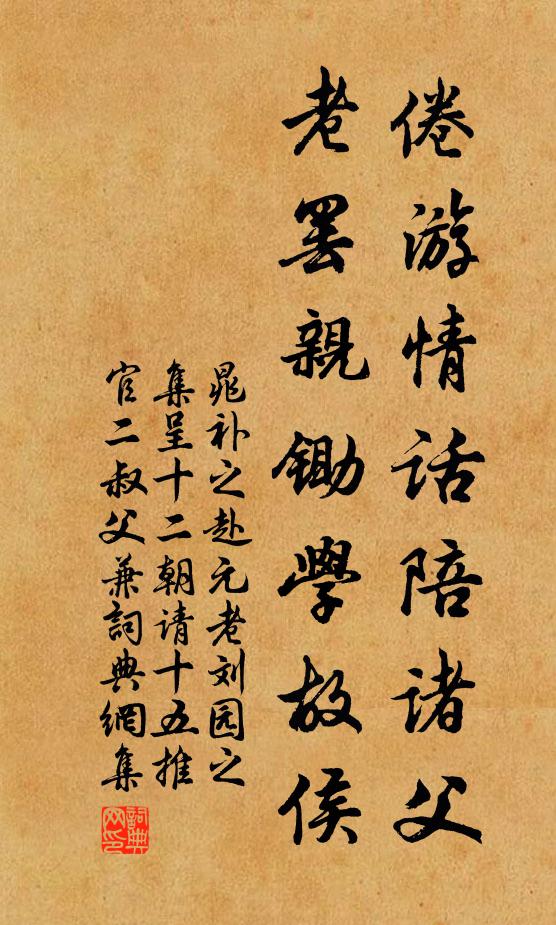 倦游情话陪诸父
老罢親鋤學故侯
晁补之赴元老刘园之
集呈十二朝请十五推
官二叔父兼詞典網集
詞典网印